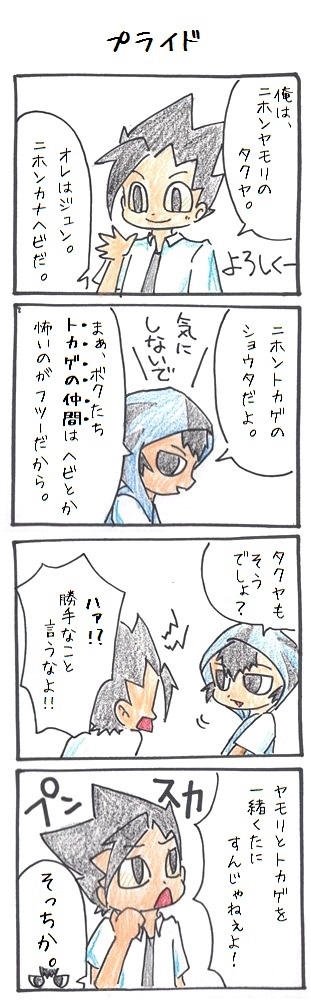 プライド
俺は、
ニホンヤモリの
タクヤ。
よろしくー
オレはジュン。
ニホンカナヘビだ。
ニホントカゲの
ショウタだよ。
気に
しないで
まぁ、ボクたち
トカゲの仲間はヘビとか
怖いのがフツーだから。
タクヤも
そう
でしょ?
ハァ!?
勝手なこと
言うなよ!!
ヤモリとトカゲを
一緒くたに
すんじゃねぇよ!
スカ
ペン
そっちか。